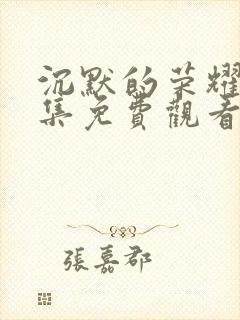 沉默的荣耀
集免費觀看
張嘉郡